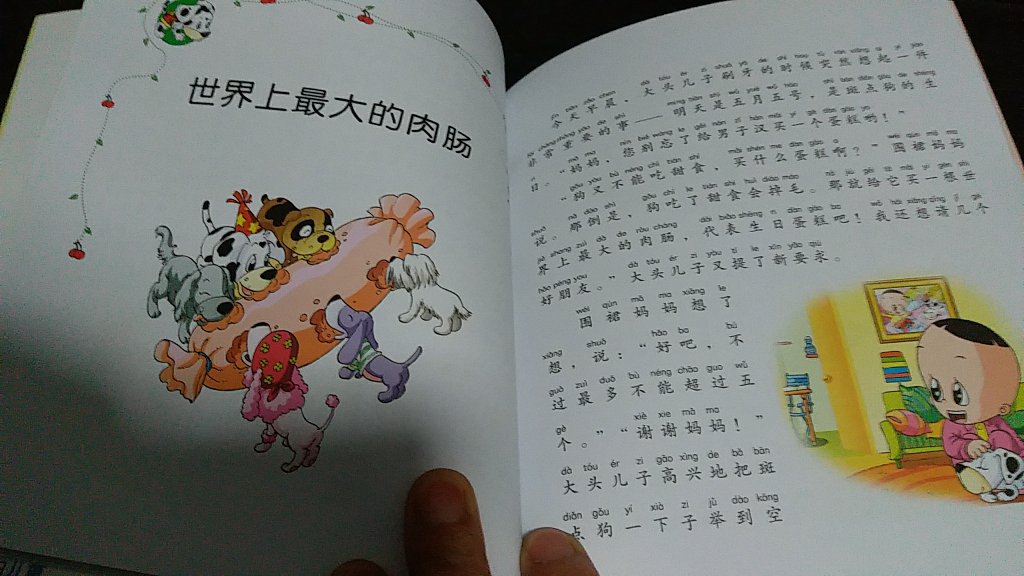 世界上最大的肉肠
jīn tiān zǎo chen dà tóu ér zi shuā yá de shí hou tū rán xiǎng qǐ yí jiàn
今天早晨，大头儿子刷牙的时候突然想起一件
fēi cháng zhòng yào de shì míng tiān shì wǔ yuè wǔ hào shì bān diǎn gǒu de shēng
非常重要的事——明天是五月五号，是斑点狗的生
rì mā ma nín bié wàng le gěi nán zǐ hàn mǎi yí gè dàn gāo yo
日。“妈妈，您别忘了给男子汉买一个蛋糕哟！”
gǒu yòu bù néng chī tián shí mǎi shén me dàn gāo a wéi qún mā ma
“狗又不能吃甜食，买什么蛋糕啊？”围裙妈妈
shuō nà dào shì gǒu chī le tián shí huì diào máo nà jiù gěi tā mǎi yì gēn shì
说。“那倒是，狗吃了甜食会掉毛。那就给它买一根世
jiè shàng zuì dà de ròu cháng dài biǎo shēng rì dàn gāo ba wǒ hái xiǎng qǐng jǐ gè
界上最大的肉肠，代表生日蛋糕吧！我还想请几个
hǎo péng you dà tóu ér zi yòu tí le xīn yāo qiú
好朋友。”大头儿子又提了新要求。
wéi qún mā ma xiǎng le
围裙妈妈想了
xiǎng shuō hǎo ba bù
想，说：“好吧，不
guò zuì duō bù néng chāo guò wǔ
过最多不能超过五
gè xiè xie mā ma
个。”“谢谢妈妈！”
dà tóu ér zi gāo xìng de bǎ bān
大头儿子高兴地把斑
diǎn gǒu yí xià zi jǔ dào kōng
点狗一下子举到空